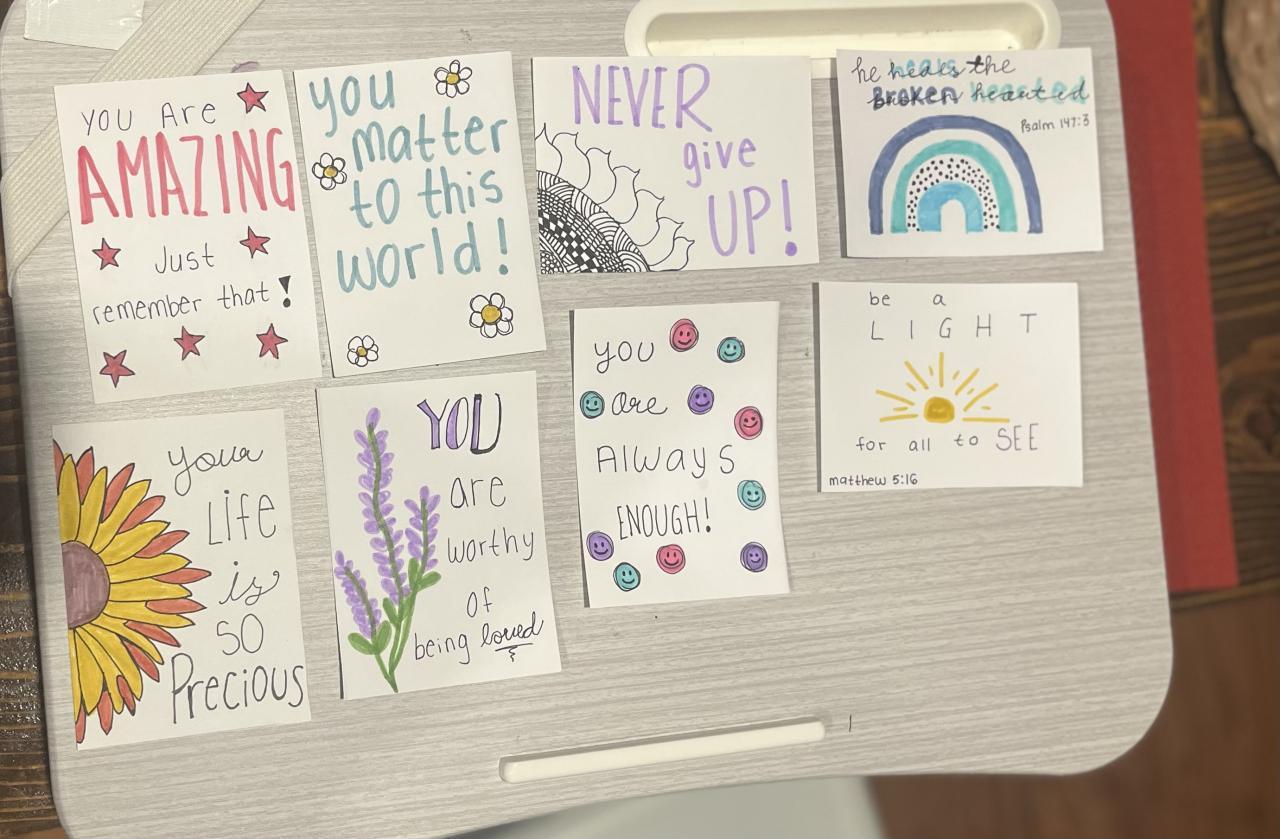 YOU Are
AMAZING
Just
remember that!
you
matter
to this
world!
NEVER
give
UP!
he heals the
BROKEN hearted
Psalm 147:3
your
Life
is
SO
Precious
YOU
are
worthy
Of
being loved
you
are
Always
ENOUGH!
be a
LIGHT
for all to SEE
matthew 5:16